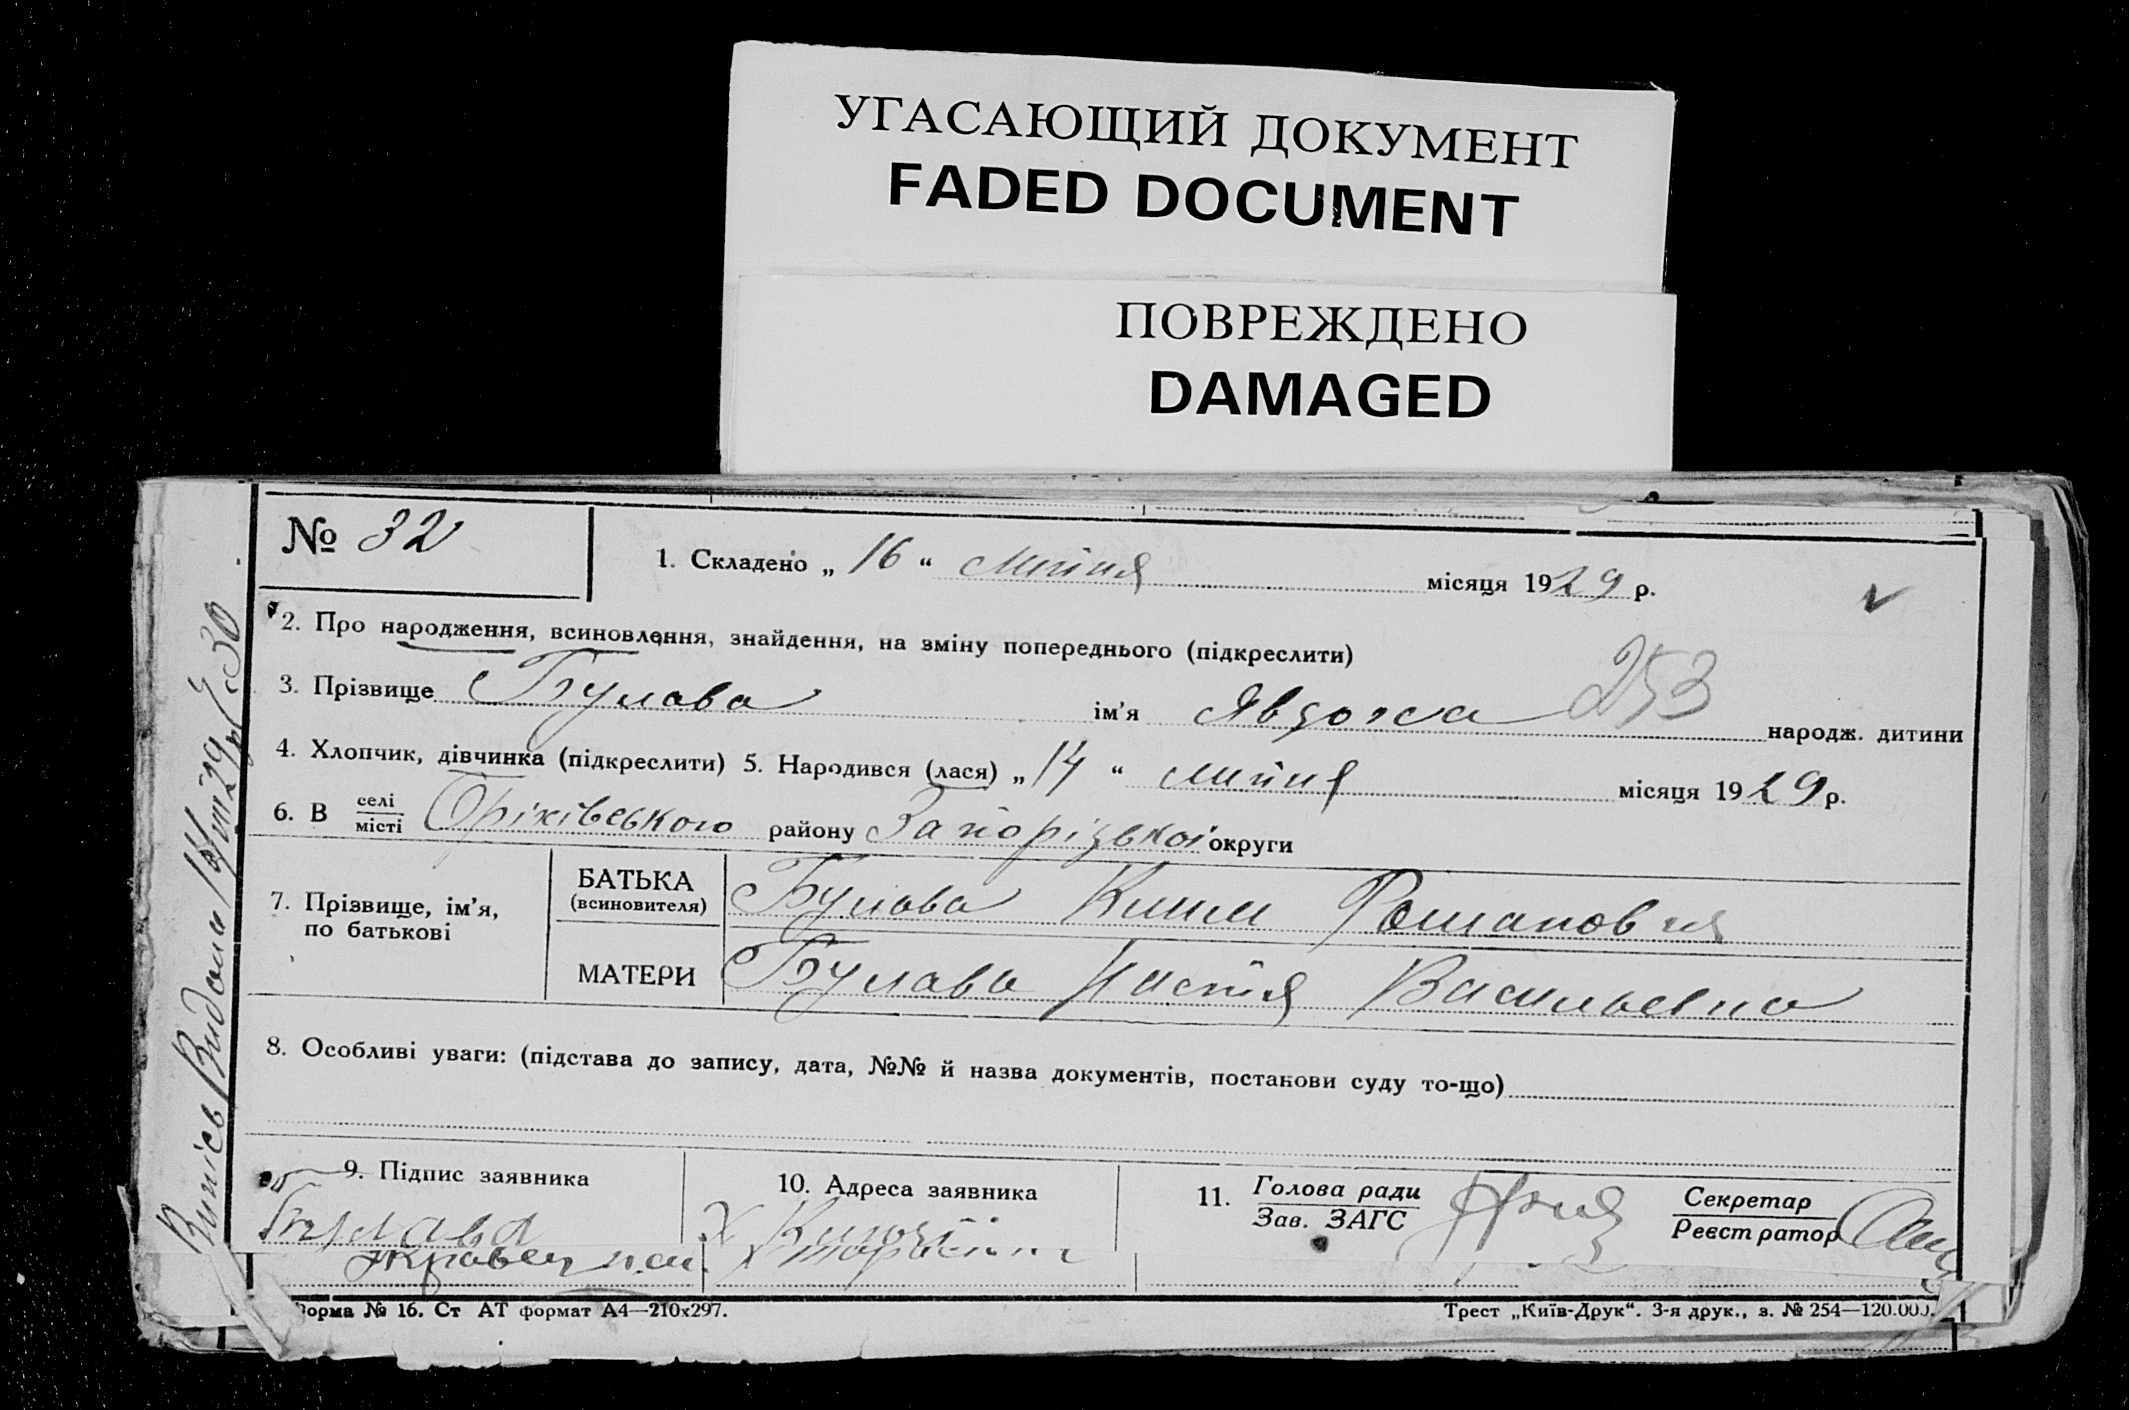 УГАСАЮЩИЙ ДОКУМЕНТ
FADED DOCUMENT
ПОВРЕЖДЕНО
DAMAGED
№ 32
1. Складено „ 16 “ липня місяця 1929 р.
2. Про народження, всиновлення, знайдення, на зміну попереднього (підкреслити)
253
3. Прізвище Булава ім'я Явдоха народж. дитини
4. Хлопчик, дівчинка (підкреслити) 5. Народився (лася) „ 14 “ липня місяця 1929 р.
6. В селі місті Оріхівського району Запорізької округи
7. Прізвище, ім'я, по батькові
БАТЬКА (всиновителя) Булава Клим Романович
МАТЕРИ Булава Настя Васильевна
8. Особливі уваги: (підстава до запису, дата, №№ й назва документів, постанови суду то-що)
9. Підпис заявника
Булава
10. Адреса заявника
11. Голова ради Зав. ЗАГС
Секретар Реєстратор
Форма № 16. Ст АТ формат А4—210х297.
Трест „Київ-Друк“. 3-я друк., з. № 254—120.000.